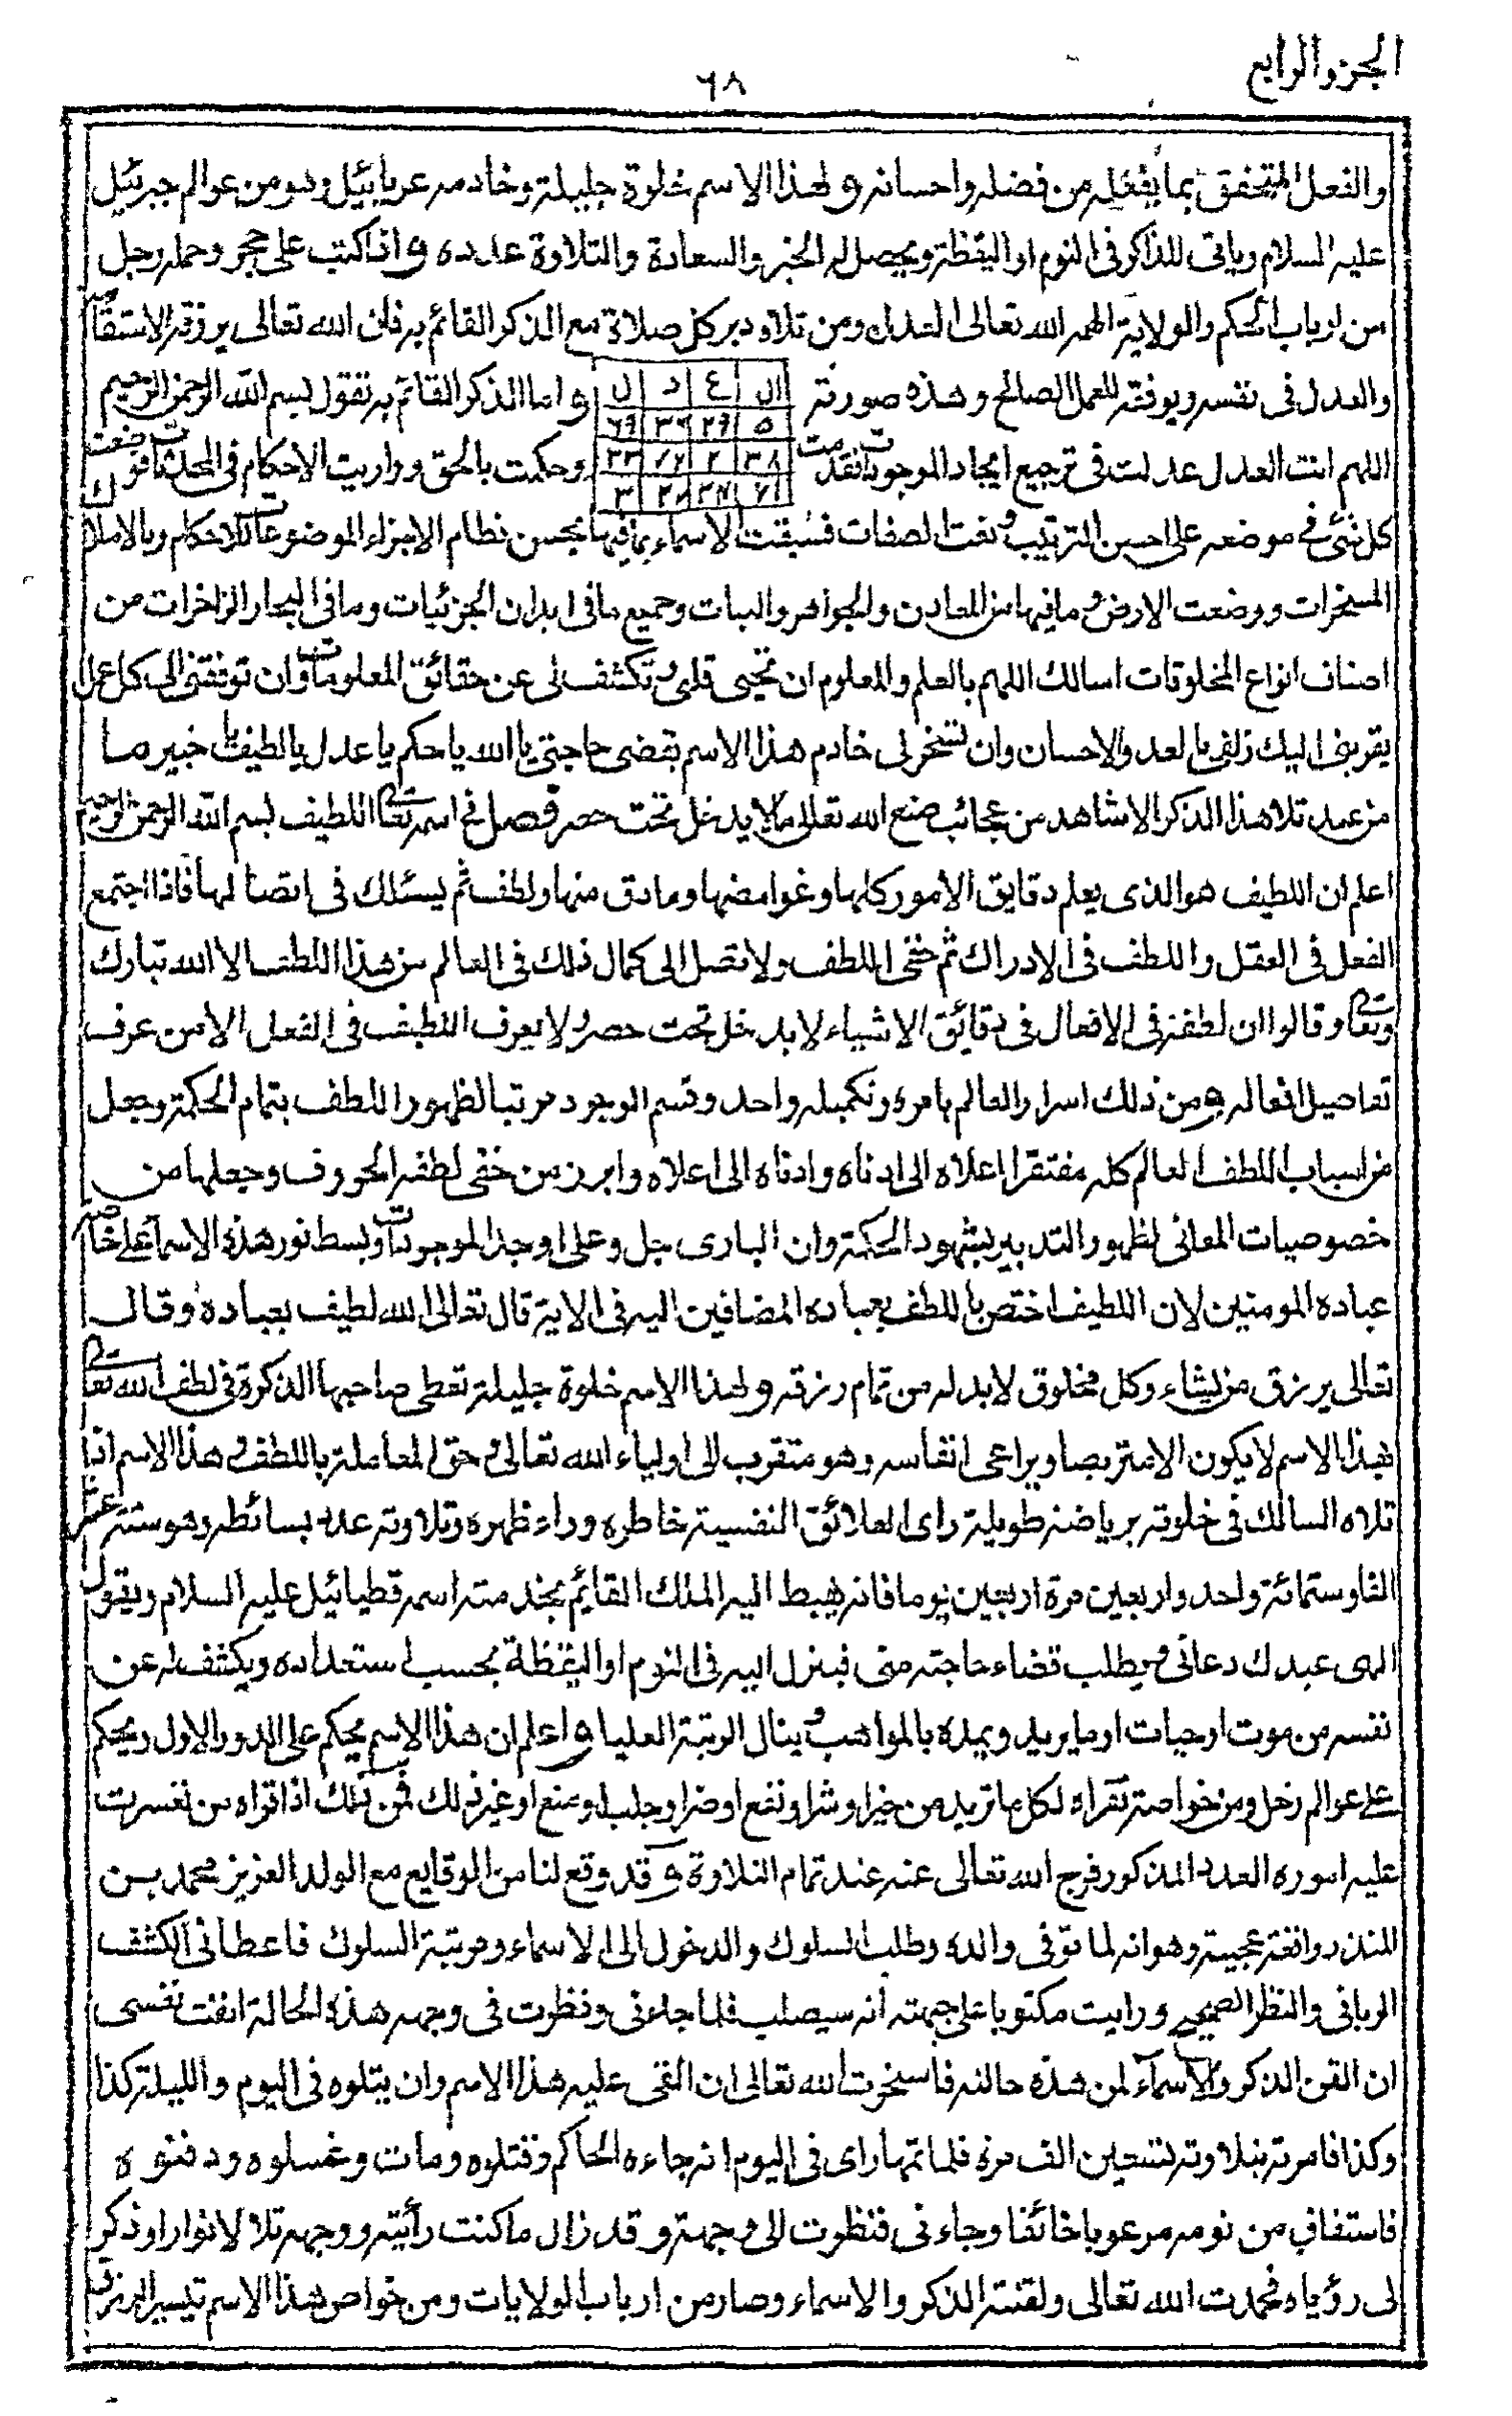 الجزو الرابع
٦٨
والفعل المتحفق بما يفعله من فضله واحسانه و لهذا الاسم خلوة جليلة وخادمه عريائيل وهو من عوالم جبرئيل
عليه السلام وياتى للذاكر فى النوم او اليقظة ويحصل له الخير والسعادة والتلاوة عدده و اذا كتب على حجر وحمله رجل
من ارباب الحكم والولاية الهمه الله تعالى العدل ومن تلاه دبر كل صلاة مع الذكر القائم به فان الله تعالى يرزقه الاستقامة
والعدل فى نفسه ويوفقه للعمل الصالح وهذه صورته
ال ع د ل
٥ ٢٩ ٣٦ ٦٩
٣٨ ٢ ٧٢ ٣٣
٧١ ٣٧ ٢٨ ٣
و اما الذكر القائم به تقول بسم الله الرحمن الرحيم
اللهم انت العدل عدلت فى ترجيع ايجاد الموجودات تقدمت وحكمت بالحق وراريت الاحكام فى المحدثات فوضعت
كل شئ فى موضعه على احسن الترتيب و نعت الصفات فسبقت الاسماء بما فيها بحسن نظام الاجزاء الموضوعات للاحكام وبالاملاك
المسخرات ووضعت الارض و ما فيها من المعادن والجواهر والنبات وجميع ما فى ابدان الجزئيات وما فى البحار الزاخرات من
اصناف انواع المخلوقات اسالك اللهم بالعلم والمعلوم ان تحيى قلبى و تكشف لى عن حقائق المعلومات وان توفقنى الى كل عمل
يقربنى اليك زلفى بالعدل والاحسان وان تسخر لى خادم هذا الاسم بقضى حاجتى يا الله يا حكم يا عدل يا لطيف يا خبير ما
من عبد تلا هذا الذكر الا شاهد من عجائب صنع الله تعالى ما لا يدخل تحت حصر فصل فى اسمه تعالى اللطيف بسم الله الرحمن الرحيم
اعلم ان اللطيف هو الذى يعلم دقايق الامور كلها وغوامضها وما دق منها ولطف ثم يسئلك فى اتصالها فاذا اجتمع
الفعل فى العقل واللطف فى الادراك ثم خفى اللطف ولا تصل الى كمال ذلك فى العالم من هذا اللطف الا الله تبارك
وتعالى وقالوا ان لطفه فى الافعال فى دقائق الاشياء لا يدخل تحت حصر و لا يعرف اللطيف فى الفعل الا من عرف
تفاصيل افعاله و من ذلك اسرار العالم بامره ونكميله واحد وقسم الوجود مرتبا لظهور اللطف بتمام الحكمة وجعل
من اسباب اللطف العالم كله مفتقرا اعلاه الى ادناه وادناه الى اعلاه وابرز من خفى لطفه الحروف وجعلها من
خصوصيات المعانى لظهور التدبير بشهود الحكمة وان البارى جل وعلى اوجد الموجودات وبسط نور هذه الاسماء على خاصة
عباده المومنين لان اللطيف اختص باللطف بعباده المضافين اليه فى الاية قال تعالى الله لطيف بعباده وقال
تعالى يرزق من يشاء وكل مخلوق لابد له من تمام رزقه و لهذا الاسم خلوة جليلة تعطى صاحبها الذكرة فى لطف الله تعالى
بهذا الاسم لا يكون الا متربصا ويراعى انفاسه وهو متقرب الى اولياء الله تعالى و حق المعاملة باللطف و هذا الاسم اذا
تلاه السالك فى خلوته برياضة طويلة راى العلائق النفسية خاطره وراء ظهره وتلاوته عدد بسائطه وهو ستة عشر
الفا وستمائة واحد واربعين مرة اربعين يوما فانه يهبط اليه الملك القايم بخدمته اسمه قطيائيل عليه السلام ويقول
الهى عبدك دعانى و يطلب قضاء حاجته منى فينزل اليه فى النوم او اليقظة بحسب استعداده ويكشف له عن
نفسه من موت او حيات او ما يريد ويمده بالمواهب و ينال الرتبة العليا و اعلم ان هذا الاسم يحكم على الدور الاول ويحكم
على عوالم زحل ومن خواصه تقراه لكل ما تريد من خير او شر او نفع او ضر او جلب او منع او غير ذلك فمن ذلك اذا قراه من تعسرت
عليه اموره العدد المذكور فرج الله تعالى عنه عند تمام التلاوة و قد وقع لنا من الوقايع مع الولد العزيز محمد بن
المنذر واقعة عجيبة وهو انه لما توفى والده وطلب السلوك والدخول الى الاسماء ومرتبة السلوك فاعطانى الكشف
الربانى والنظر الصحيح ورايت مكتوبا على جبهته انه سيصلب فلما جاءنى ونظرت فى وجهه هذه الحالة انفت نفسى
ان القن الذكر والاسماء لمن هذه حالته فاستخرت الله تعالى ان القى عليه هذا الاسم وان يتلوه فى اليوم والليلة كذا
وكذا فامرته بتلاوته تسعين الف مرة فلما تمها راى فى اليوم انه جاءه الحاكم وقتلوه ومات وغسلوه ودفنوه
فاستفاق من نومه مرعوبا خائفا وجاءنى فنظرت الى وجهه وقد زال ما كنت رأيته ووجهه تلالا انوارا وذكر
لى رؤياه فحمدت الله تعالى ولقنته الذكر والاسماء وصار من ارباب الولايات ومن خواص هذا الاسم تيسير الرزق